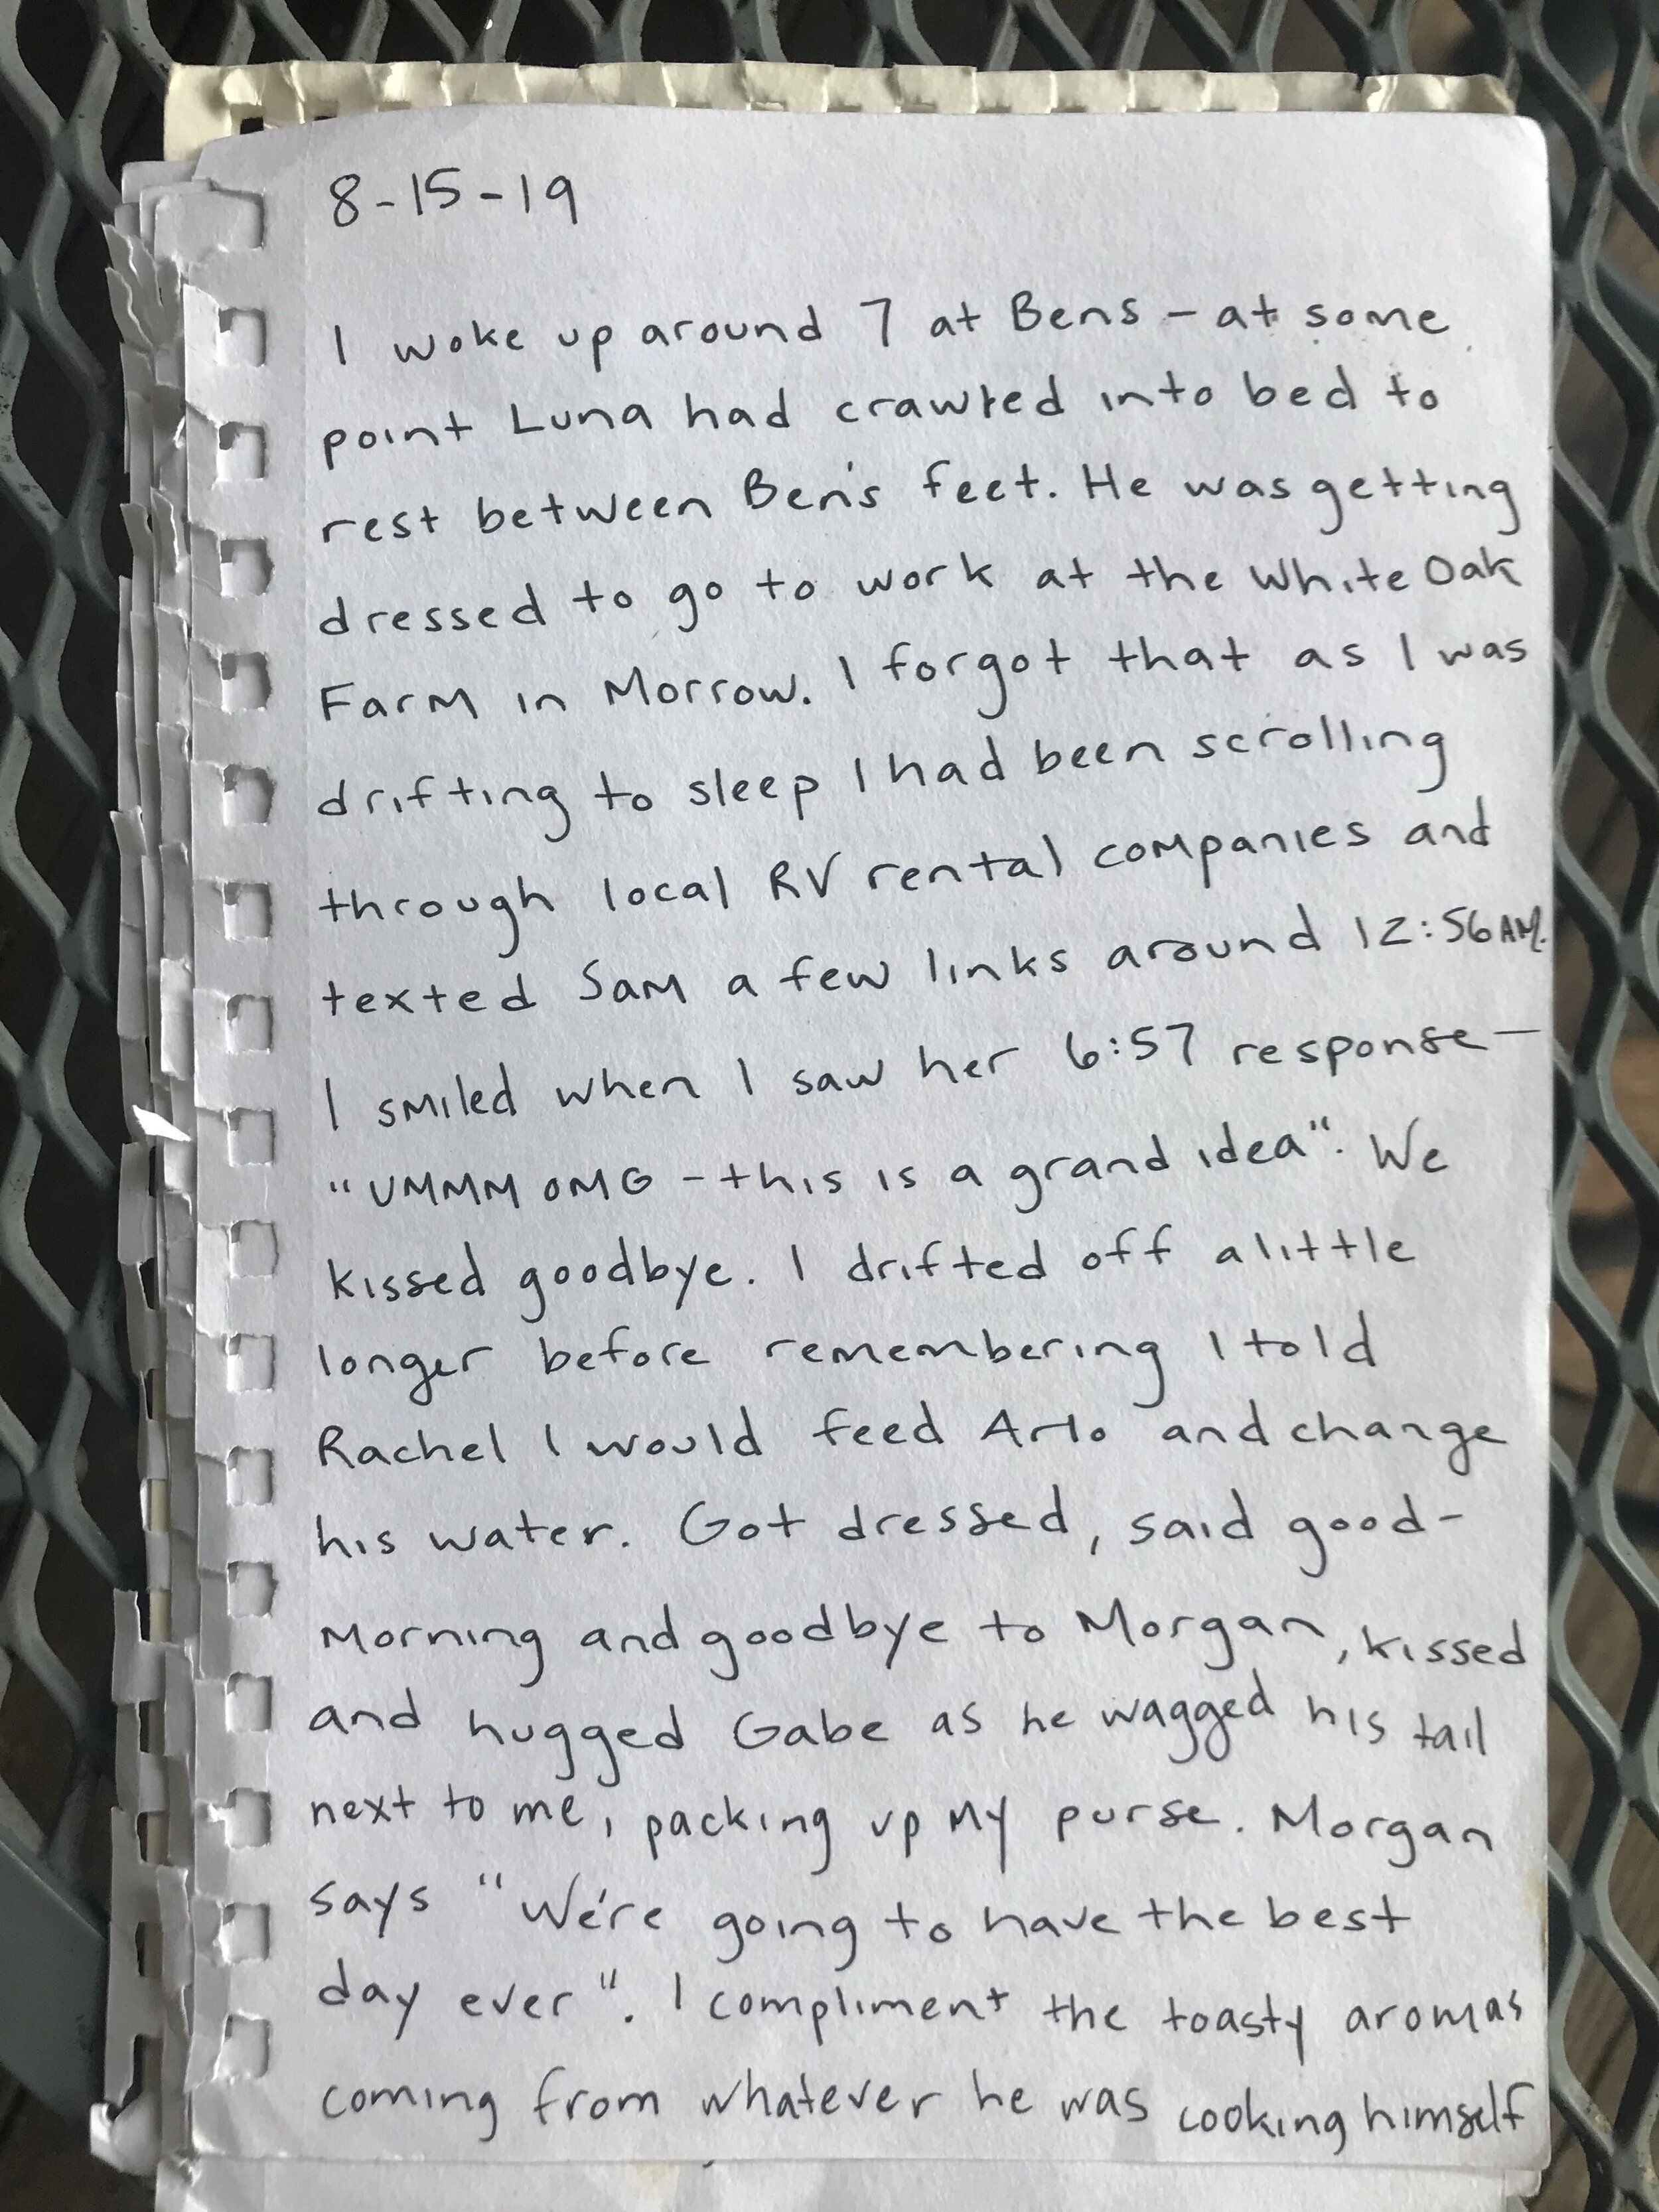 8-15-19
I woke up around 7 at Bens - at some
point Luna had crawled into bed to
rest between Ben's feet. He was getting
dressed to go to work at the White Oak
Farm in Morrow. I forgot that as I was
drifting to sleep I had been scrolling
through local RV rental companies and
texted Sam a few links around 12:56AM.
I smiled when I saw her 6:57 response—
"UMMM OMG - this is a grand idea". We
kissed goodbye. I drifted off a little
longer before remembering I told
Rachel I would feed Arlo and change
his water. Got dressed, said good-
morning and goodbye to Morgan, kissed
and hugged Gabe as he wagged his tail
next to me, packing up my purse. Morgan
says "We're going to have the best
day ever". I compliment the toasty aromas
coming from whatever he was cooking himself